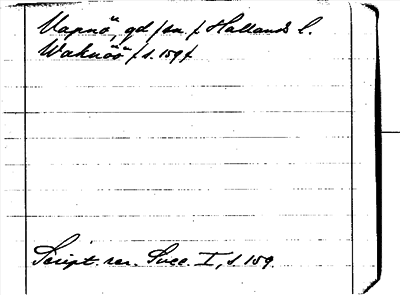 Vapnö, gd /sn. / Hallands l.
Waknöö / s. 159 /
Script. rer. Svec. I, s. 159.